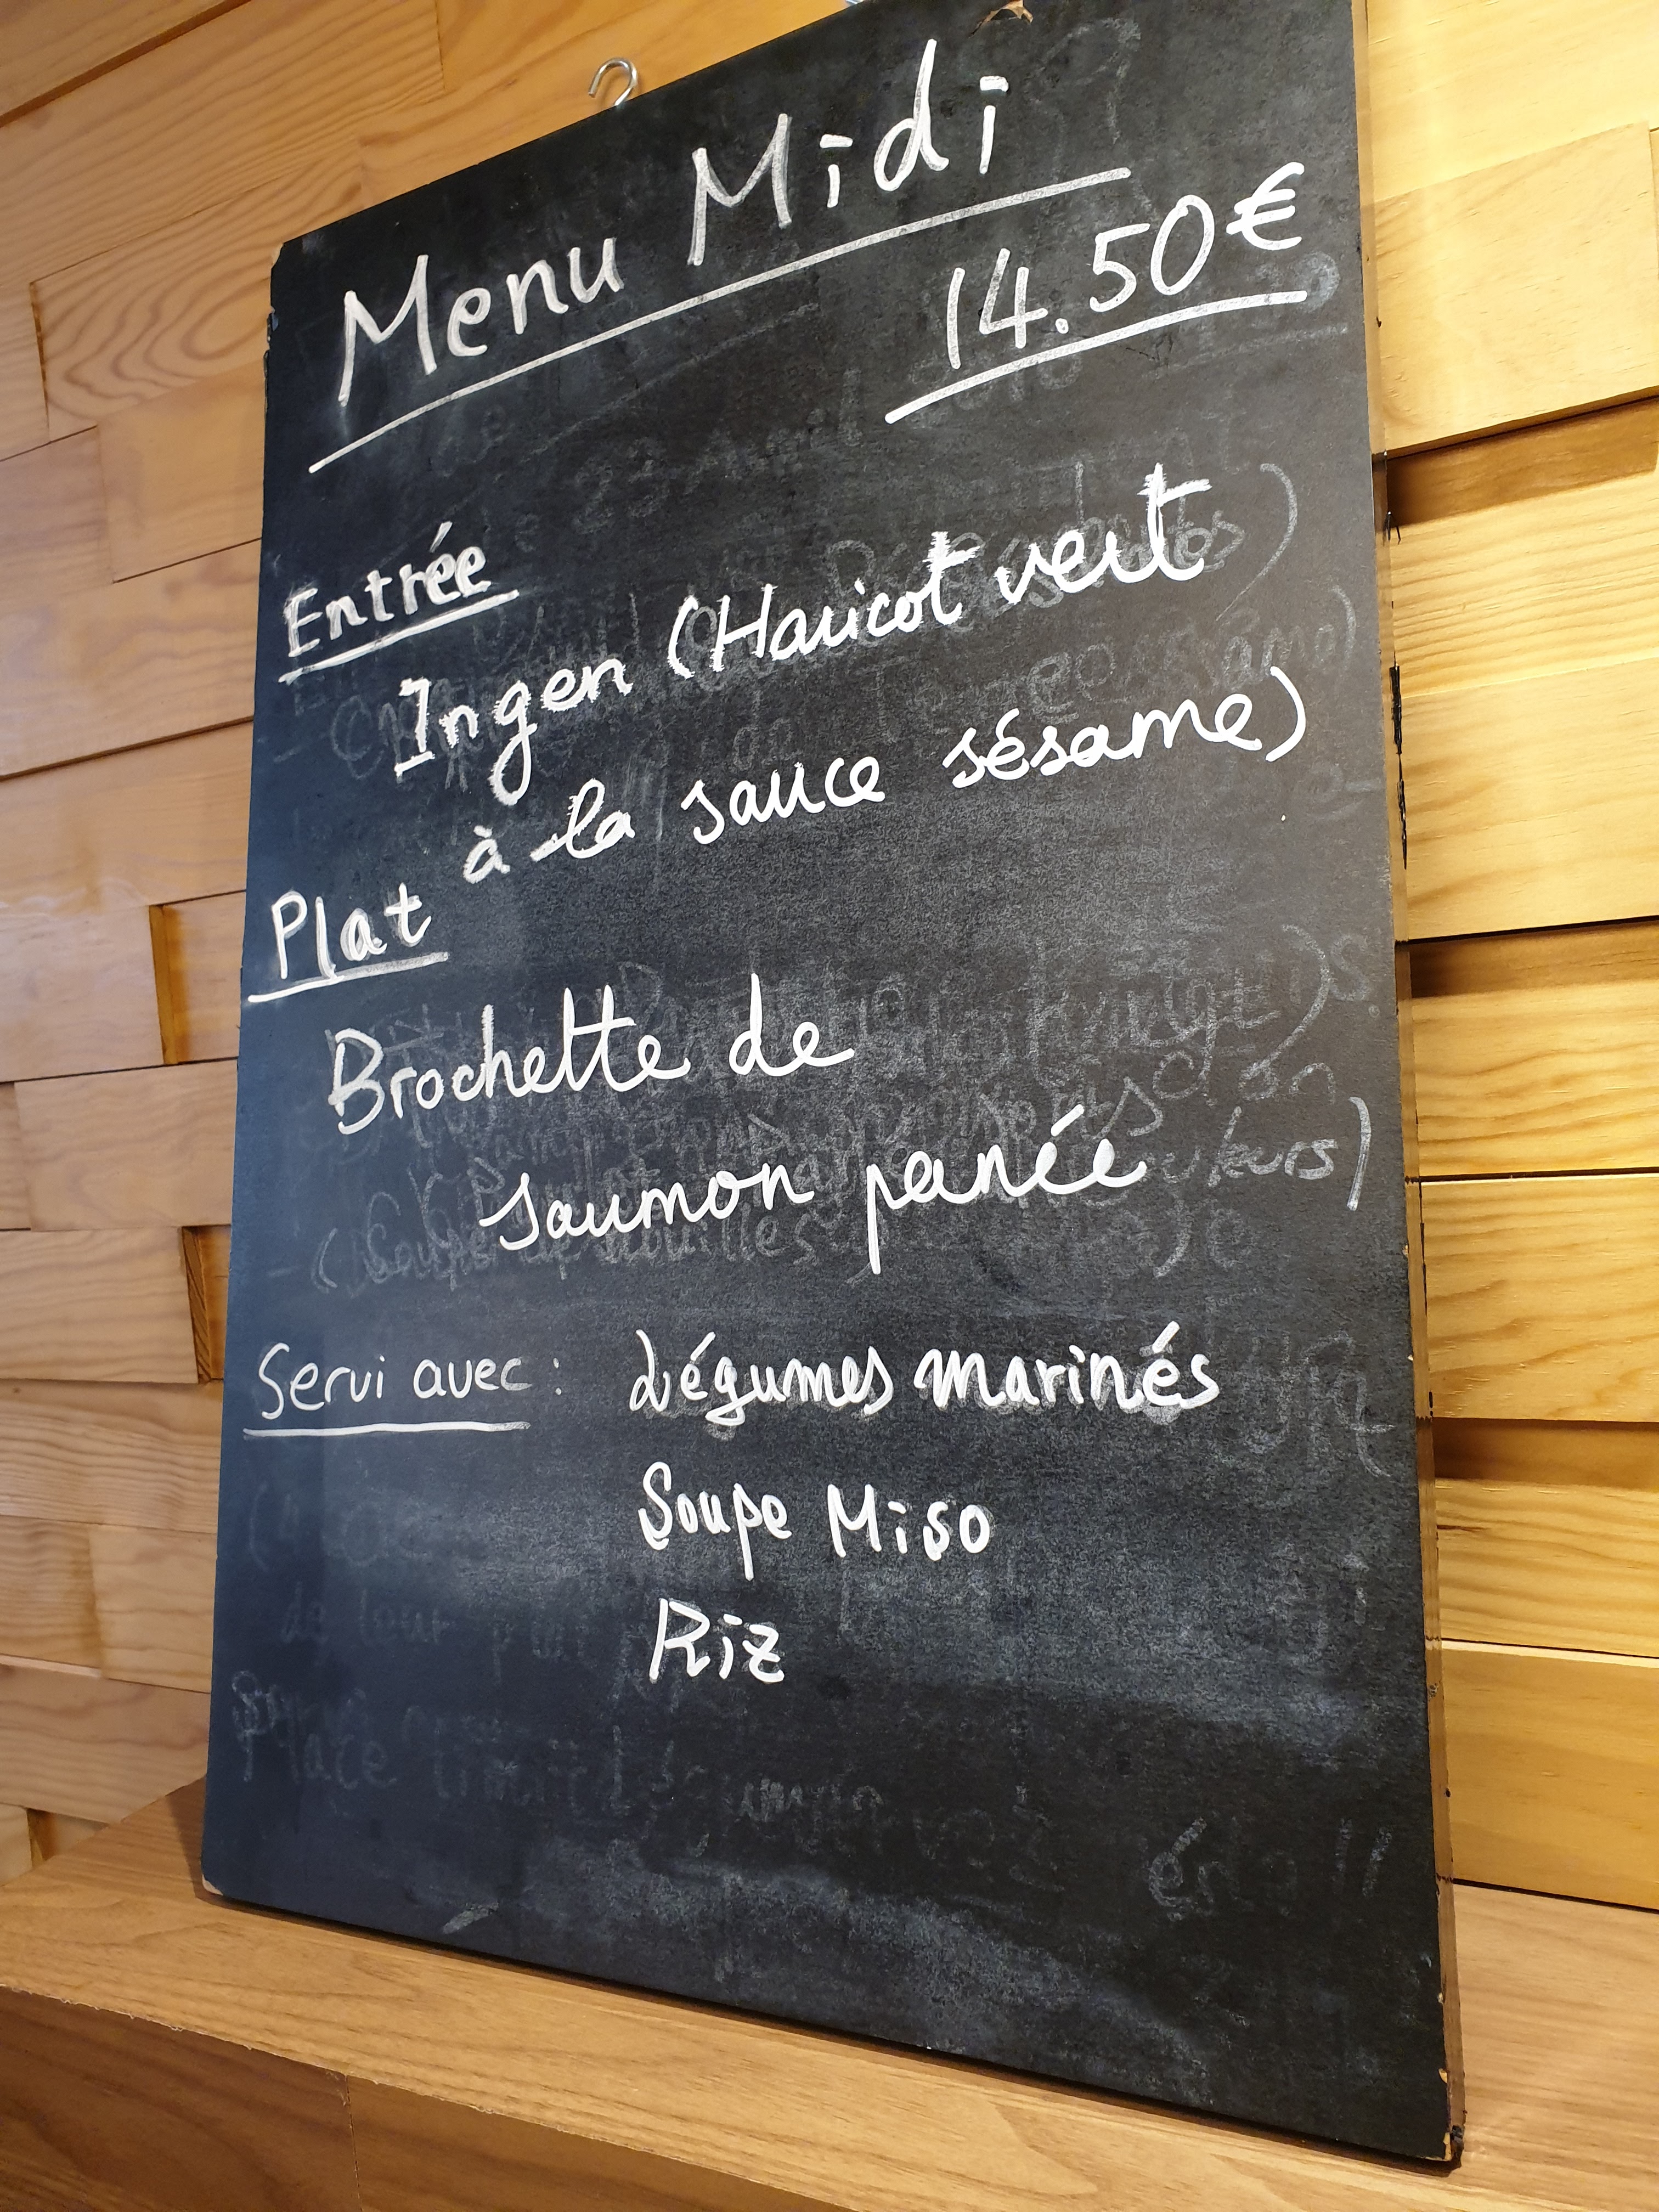 Menu Midi
14.50€
Entrée
Ingen (Haricot vert
à la sauce sésame)
Plat
Brochette de
saumon panée
Servi avec : Légumes marinés
Soupe Miso
Riz